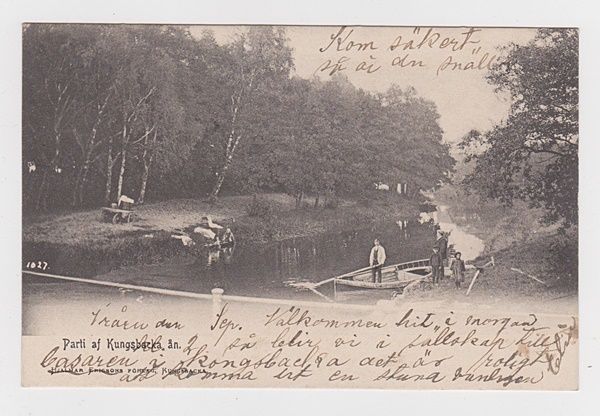 Kom säkert
så är du snäll
1027.
Vråen den Sep. Välkommen hit i morgon
Parti af Kungsbacka ån.
så blir vi i sällskap till
basaren i Kongsbacka det är roligt
HJALMAR ERICSONS FÖRLAG, KUNGSBACKA.
att komma hit en stund